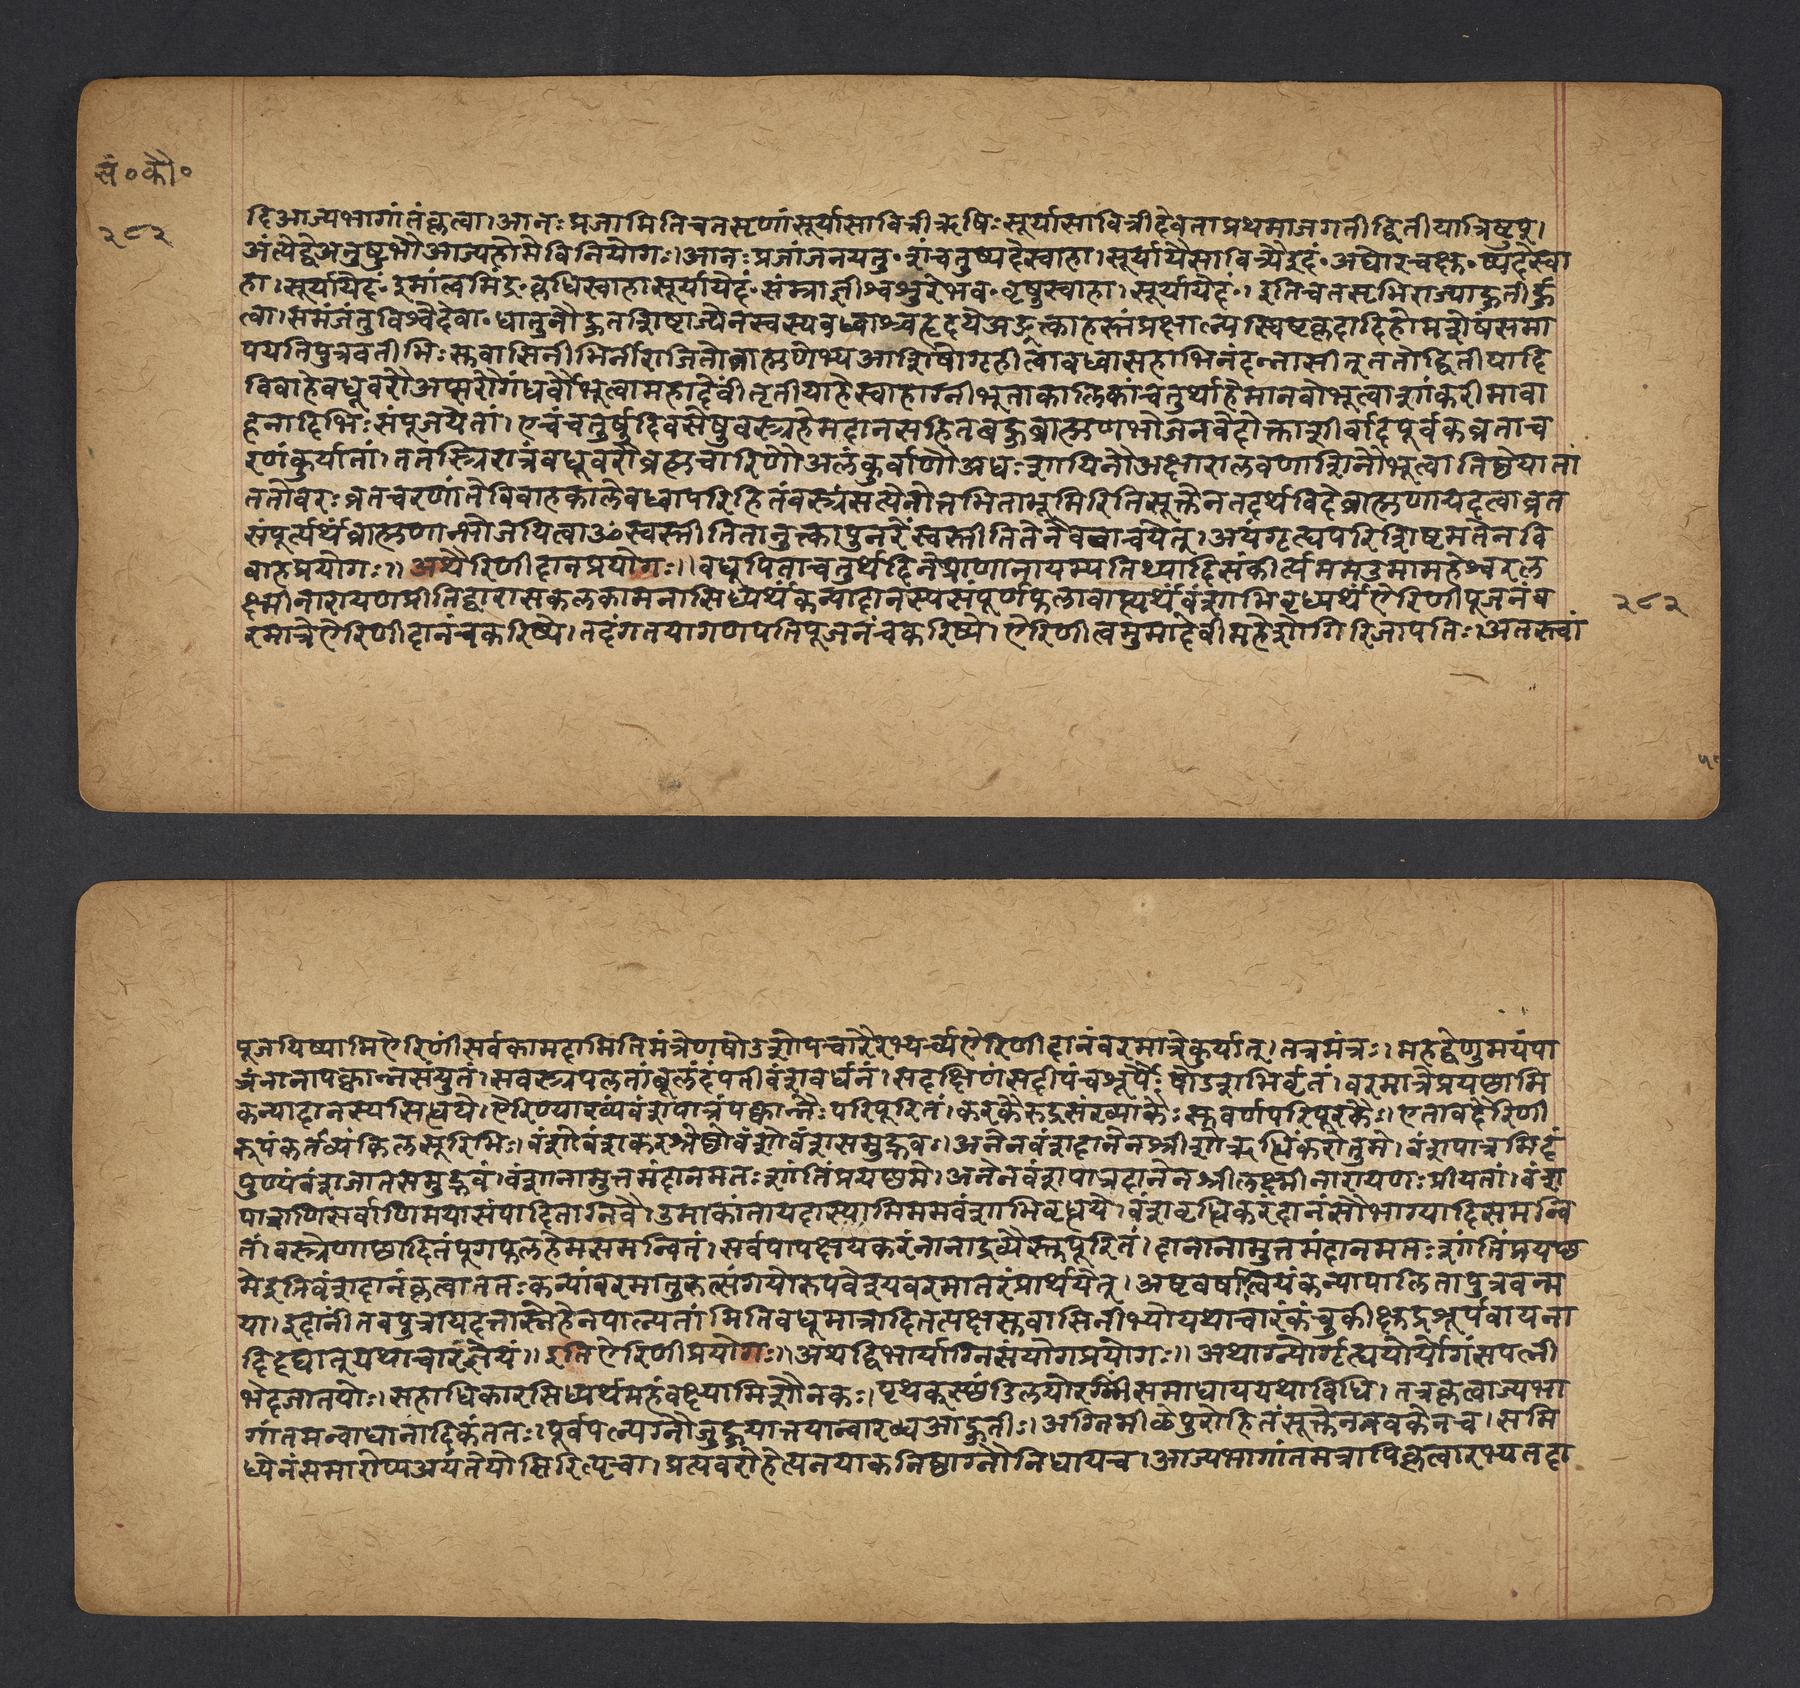 सं॰कौ॰
२८२
दिआज्यभागांतंकृत्वा।आनःप्रजामितिचतसृणांसूर्यासावित्रीऋषिःसूर्यासावित्रीदेवताप्रथमाजगतीद्वितीयात्रिष्टुप्।
अंत्येद्वेअनुष्टुभौआज्यहोमेविनियोगः।आनःप्रजांजनयतु॰शंचतुष्पदेस्वाहा।सूर्यायैसावित्र्यैइदं॰अघोरचक्षु॰ष्पदेस्वा
हा।सूर्यायैदं॰इमांत्वमिंद्र॰कृधिस्वाहासूर्यायैदं॰संम्राज्ञीश्वशुरेभव॰वृषुस्वाहा।सूर्यायैदं॰।इतिचतसृभिराज्याहुतीर्हु
त्वा।समंजंतुविश्वेदेवा॰धातुनौहुतशिष्टाज्येनस्वस्यवध्वाश्चहृदयेअङ्क्त्काहस्तंप्रक्षाल्यस्विष्टकृदादिहोमशेषंसमा
पयतिपुत्रवतीभिःसुवासिनीभिर्नीराजितोब्राह्मणेभ्यआशिषोगृहीत्वावध्वासहाभिनंदन्नासीतततोद्वितीयादि
विवाहेवधूवरौअप्सरोगंधर्वौभूत्वामहादेवींतृतीयाहेस्वाहाग्नीभूताकालिकांचतुर्थाहेमानवौभूत्वाशांकरीमावा
हनादिभिःसंपूजयेतां।एवंचतुर्षुदिवसेषुवस्त्रहेमदानसहितबहुब्राह्मणभोजनवेदोक्ताशीर्वादपूर्वकव्रताच
रणंकुर्यातां।ततस्त्रिरात्रंवधूवरौब्रह्मचारिणौअलंकुर्वाणौअधःशायिनौअक्षारालवणाशिनौभूत्वातिष्ठेयातां
ततोवरःव्रतचरणांतेविवाहकालेवध्वापरिहितंवस्त्रंसत्येनोत्तभिताभूमिरितिसूक्तेनतदर्थविदेब्राह्मणायदत्वाव्रत
संपूर्त्यर्थंब्राह्मणान्भोजयित्वाॐस्वस्तीतितानुक्त्कापुनरेंस्वस्तीतितेनैववाचयेत्।अयंगृह्यपरिशिष्टमतेनवि
वाहप्रयोगः।।अथैरिणीदानप्रयोगः।।वधूपिताचतुर्थदिनेप्राणानायम्यतिथ्यादिसंकीर्त्यममउमामहेश्वरल
क्ष्मीनारायणप्रीतिद्वारासकलकामनासिध्यर्थंकन्यादानस्यसंपूर्णफलावाप्त्यर्थंवंशाभिवृध्यर्थंऐरिणीपूजनंव
२८२
रमात्रेऐरिणीदानंचकरिष्ये।तदंगतयागणपतिपूजनंचकरिष्ये।ऐरिणीत्वमुमादेवीमहेशोगिरिजापतिः।अतस्त्वां
पूजयिष्यामिऐरिणींसर्वकामदामितिमंत्रेणषोडशोपचारैरभ्यर्च्यऐरिणीदानंवरमात्रेकुर्यात्।तत्रमंत्रः।महद्वेणुमयंपा
त्रंनानापक्वान्नसंयुतं।सवस्त्रफलतांबूलंदंपतीवंशवर्धनं।सदक्षिणंसदीपंचशूर्पैःषोडशभिर्वृतं।वरमात्रेप्रयछामि
कन्यादानस्यसिद्धये।ऐरिण्याख्यंवंशपात्रंपक्वान्नैःपरिपूरितं।करकैरुद्रसंख्याकैःसुवर्णपरिपूरकैः।एतावदैरिणी
रूपंकर्तव्यंकिलसूरिभिः।वंशोवंशकरश्रेष्ठोवंशोवंशसमुद्भवः।अनेनवंशदानेनश्रीशोऋद्धिंकरोतुमे।वंशपात्रमिदं
पुण्यंवंशजातसमुद्भवं।वंशानामुत्तमंदानमतःशांतिंप्रयछमे।अनेनवंशपात्रदानेनश्रीलक्ष्मीनारायणःप्रीयतां।वंश
पात्राणिसर्वाणिमयासंपादितानिवै।उमाकांतायदास्यामिममवंशाभिवृद्धये।वंशवृद्धिकरंदानंसौभाग्यादिसमन्वि
तं।वस्त्रेणाछादितंपूगफलहेमसमन्वितं।सर्वपापक्षयकरंनानाद्रव्यैस्तुपूरितं।दानानामुत्तमंदानमतःशांतिंप्रयछ
मेइतिवंशदानंकृत्वाततःकन्यांवरमातुरुत्संगयोरुपवेश्यवरमातरंप्रार्थयेत्।अष्टवर्षात्वियंकन्यापालितापुत्रवन्म
या।इदानींतवपुत्रायदत्तास्नेहेनपाल्यतांमितिवधूमात्रादितत्पक्षसुवासिनीभ्योयथाचारंकंचुकीक्षुद्रशूर्पवायना
दिदद्यात्यथाचारंज्ञेयं।।इतिऐरिणीप्रयोगः।।अथद्विभार्याग्निसंयोगप्रयोगः।।अथाग्न्योर्गृह्ययोर्योगंसपत्नी
भेदजातयोः।सहाधिकारसिध्यर्थमहंवक्ष्यामिशौनकः।पृथक्स्थंडिलयोरग्नीसमाधाययथाविधि।तत्रकृत्वाज्यभा
गांतमन्वाधानादिकंततः।पूर्वपत्न्यग्नौजुहुयात्तयान्वारब्धआहुतीः।अग्निमीळेपुरोहितंसूक्तेननवकेनच।समि
ध्येनंसमारोप्यअयंतेयोनिरित्यृचा।प्रत्यवरोहेत्यनयाकनिष्ठाग्नौनिधायच।आज्यभागांतमत्रापिकृत्वारभ्यतदा